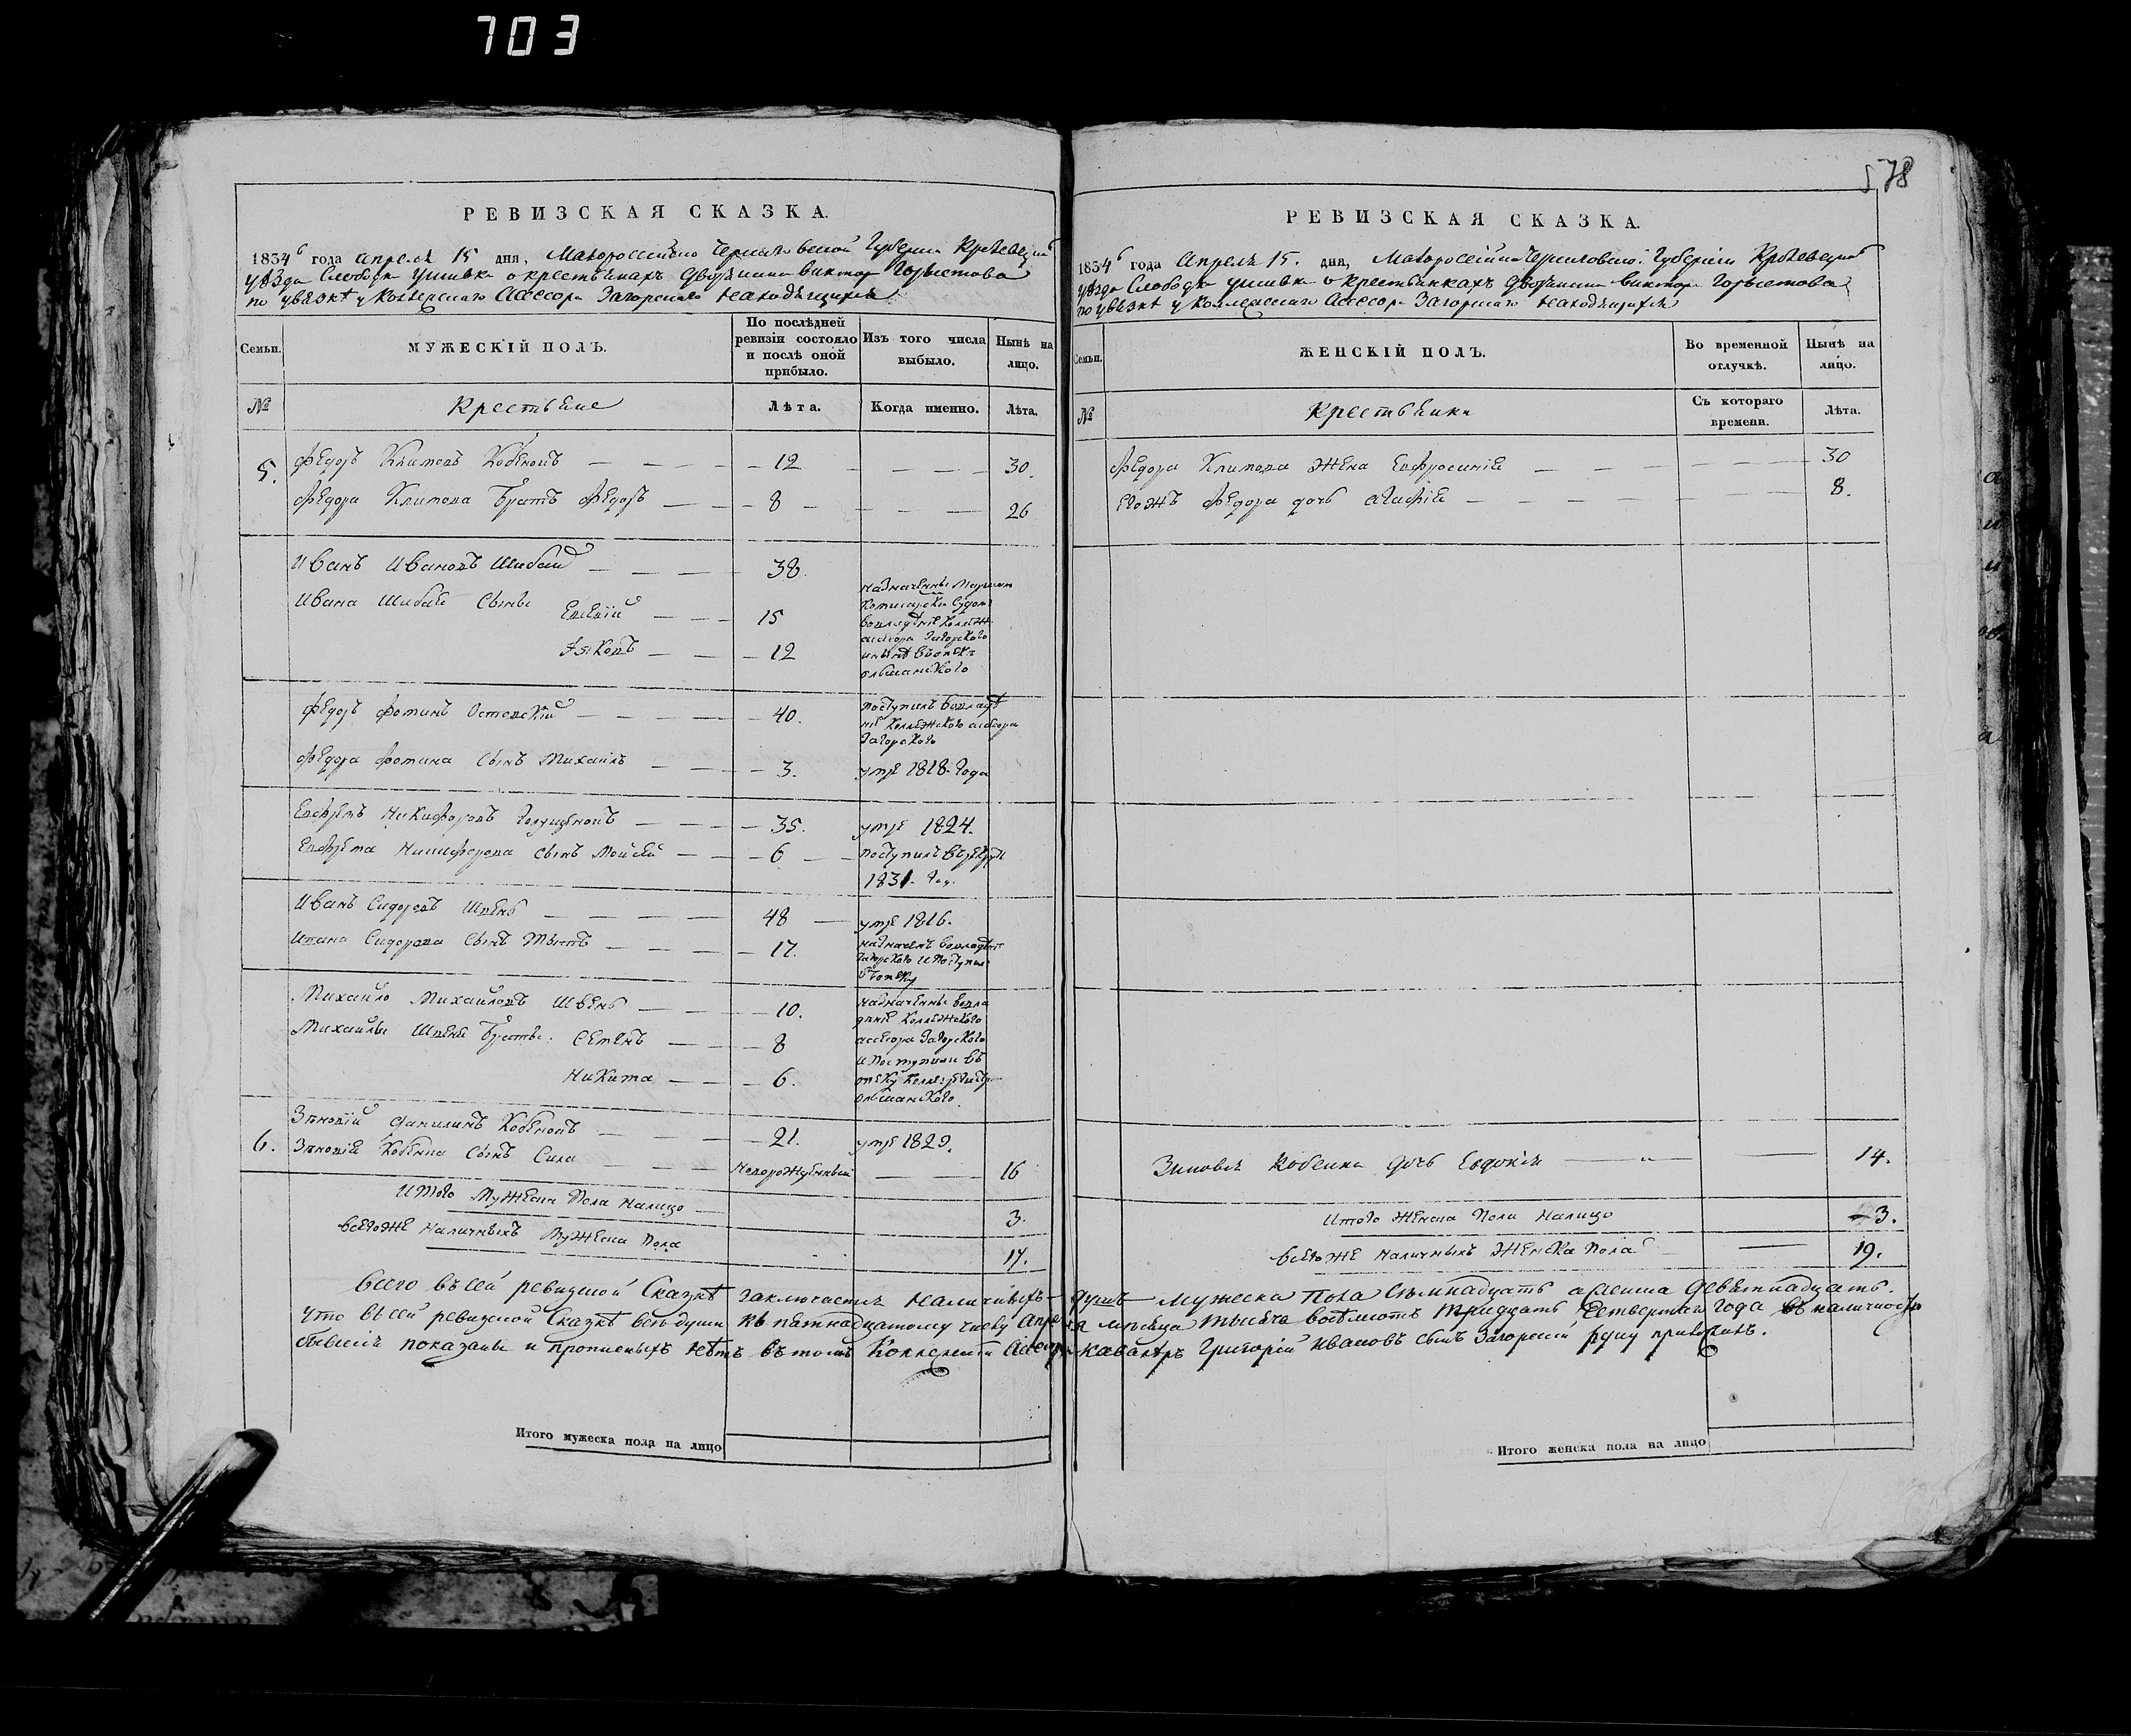 703
578
РЕВИЗСКАЯ СКАЗКА.
1834 года Апреля 15 дня, Малороссийско Черниговской Губернии Кролевецкаго
уѣзда Слободки о крестьянахъ дворянина Виктора
по увязкѣ у Коллежскаго Ассесора Загорскаго находящихся
Семьи. МУЖЕСКІЙ ПОЛЪ. По послѣдней ревизіи состояло и послѣ оной прибыло. Изъ того числа выбыло. Нынѣ на лицо.
№ Крестьяне Лѣта. Когда именно. Лѣта.
5. Федоръ Климовъ 12 30.
Федора Климова братъ Федоръ 8 26
Иванъ Ивановъ Шибай 38.
Ивана Шибая сыны Евсевій 15
Яковъ 12
назначенны
Судомъ
Коллеж.
ассесора Загорского
Ольшанского
Федоръ Фотинъ 40. поступилъ во владѣ
ніе Коллежского ассесора
Загорского
Федора Фотина сынъ Михаилъ 3. умре 1818. Года
Ефремъ Никифоровъ 35. умре 1824.
Ефрема Никифорова сынъ Мойсей 6 поступилъ в рекруты
1831. год.
Иванъ Сидоровъ Швень 48 умре 1816.
Ивана Сидорова сынъ 17. назначенъ во владѣніе
Загорского и поступил
в опеку
Михайло Михайловъ Швень 10. назначенны во вла
Михайлы Швеня братья: Семенъ 8 дѣніе Коллежского
ассесора Загорского
и поступили въ
Никита 6. опеку
Ольшанского.
6. Зѣновій Данилинъ 21. умре 1829.
Зѣновія сынъ Сила новорожденный 16
Итого мужеска пола налицо 3.
Всегоже наличныхъ мужеска пола 17.
Итого мужеска пола на лицо
РЕВИЗСКАЯ СКАЗКА.
1834 года Апреля 15. дня, Малороссийско Черниговской Губерніи Кролевецкаго
уѣзда Слободки о крестьянкахъ дворянина Виктора
по увязкѣ у Коллежскаго Ассесора Загорскаго находящихся
Семьи. ЖЕНСКІЙ ПОЛЪ. Во временной отлучкѣ. Нынѣ на лицо.
№ Крестьянки Съ котораго времени. Лѣта.
Федора Климова жена Евфросинія 30
Егожъ Федора дочь Агафія 8.
Зиновія дочь Евдокія 14.
Итого женска пола налицо 3.
Всегоже наличныхъ женска пола 19.
Итого женска пола на лицо
Всего въ сей ревизской Сказкѣ заключается наличныхъ душъ мужеска пола семнадцать а женска девятнадцать.
Что въ сей ревизской Сказкѣ всѣ души къ пятнадцатому числу Апреля мѣсяца тысяча восѣмсотъ тридцать Четвертаго года въ наличности
бывшія показаны и прописныхъ нѣтъ въ томъ Коллежскій Ассесоръ и кавалеръ Григорій Ивановъ сынъ Загорскій руку приложилъ.